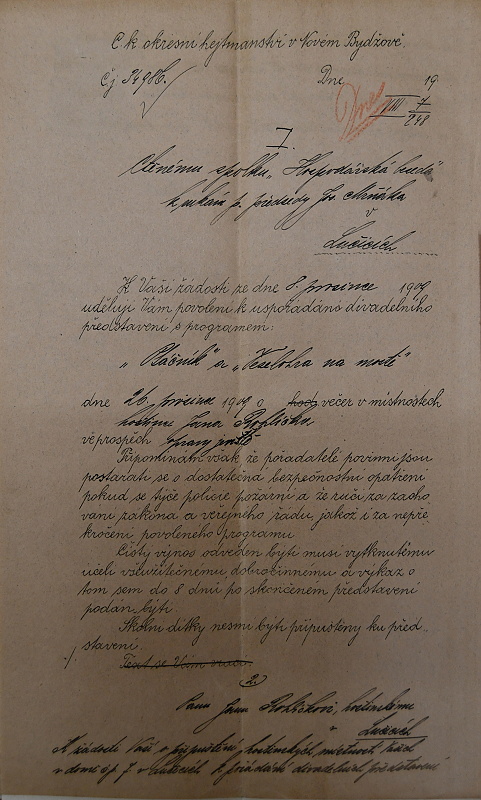 C.k. okresní hejtmanství v Novém Bydžově.
Čj. 34986.
Dne 19
Dnes
VIII 7
248
1.
Ctěnému spolku „Hospodářská beseda"
k rukám p. předsedy
v
Lučicích
K Vaší žádosti ze dne 8. prosince 1909
uděluji Vám povolení k uspořádání divadelního
představení s programem:
„Pláčník" a „Veselohra na mostě"
dne 26. prosince 1909 o hod. večer v místnostech
hostince Jana Rohlíčka
ve prospěch
Připomínám však že pořadatelé povinni jsou
postarati se o dostatečná bezpečnostní opatření
pokud se týče policie požární a že ručí za zacho„
vání zákona a veřejného řádu, jakož i za nepře„
kročení povoleného programu.
Čistý výnos odveden býti musí vytknutému
účeli všeužitečnému dobročinnému a výkaz o
tom sem do 8 dnů po skončeném představení
podán býti.
Školní dítky nesmí býti připuštěny ku před„
stavení.
Text se Vám vrací.
2.
Panu Janu Rohlíčkovi, hostinskému
Lučicích
K žádosti Vaší o připuštění hostinských místností
v domě čp. 7 v Lučicích k pořádání divadelních představení